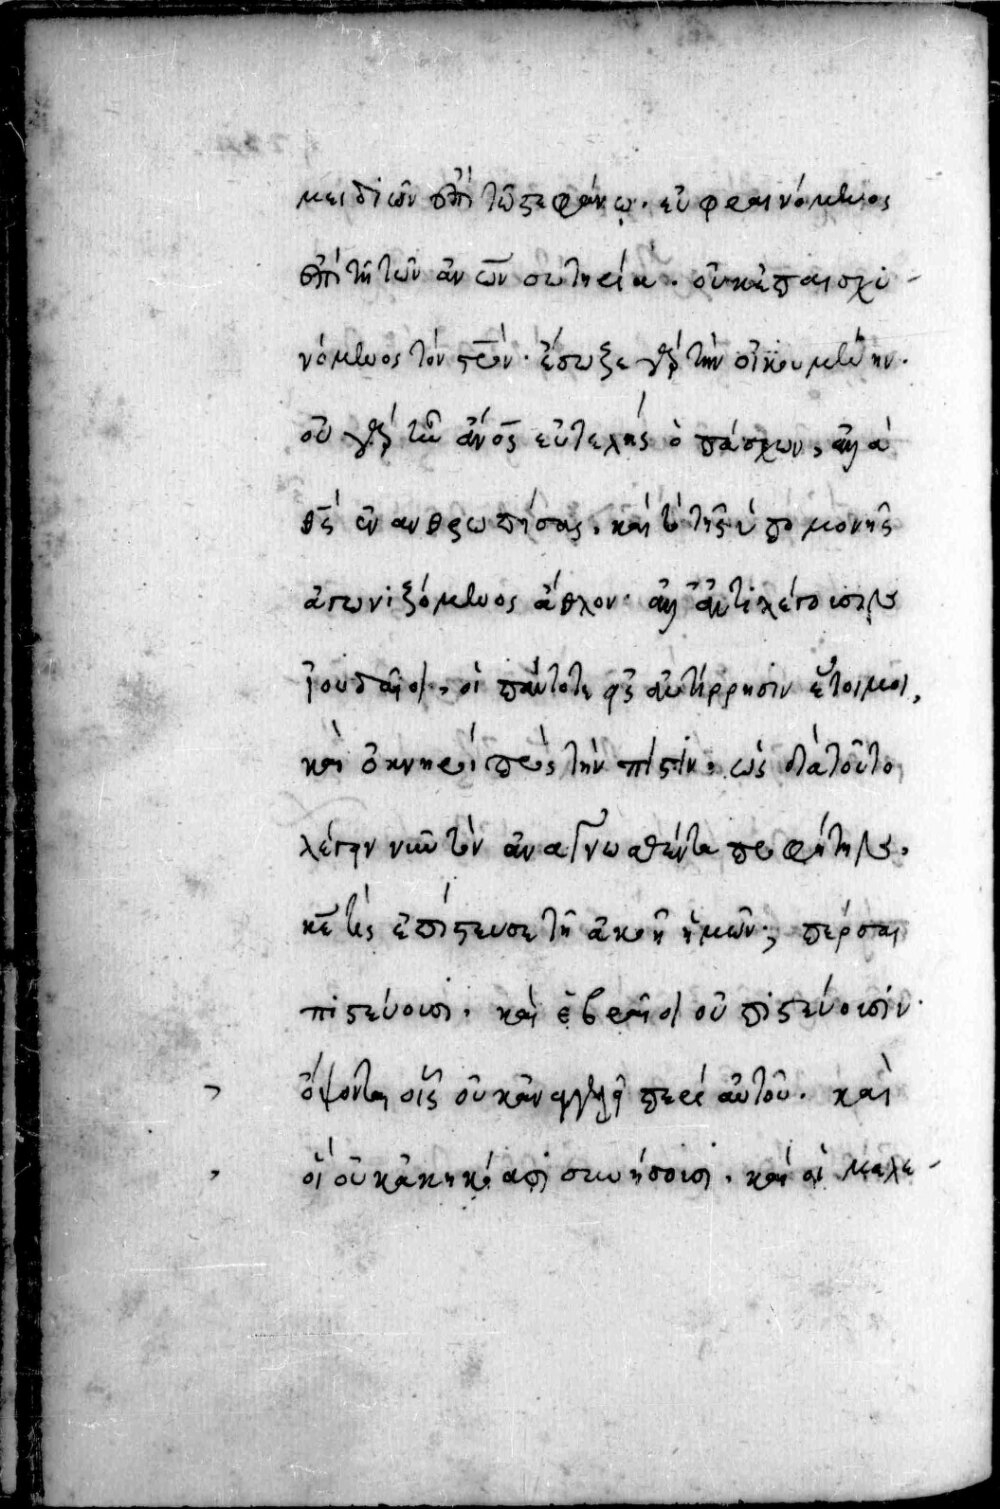 μειδιῶν ἐπὶ τῶ στεφάνω. εὐφραινόμενος
ἐπὶ τῆ τῶν ἀνων σωτηρία. οὐκ ἐπαισχυ-
νόμενος τὸν στρον. ἔσωζε γὰρ τὴν οἰκουμένην.
οὐ γὰρ ἦν ἄνος εὐτελὴς ὁ πάσχων, ἀλλὰ
θς ἐνανθρωπήσας. καὶ τὸ τῆς ὑπομονῆς
ἀγωνιζόμενος ἄθλον. ἀλλ' ἀντιλέγουσιν
ἰουδαῖοι, οἱ πάντοτε πρὸς ἀντίρρησιν ἕτοιμοι,
καὶ ὀκνηροὶ πρὸς τὴν πίστιν. ὡς διατοῦτο
λέγειν νῦν τὸν ἀναγνωσθέντα προφήτην.
κε τίς ἐπίστευσε τῆ ἀκοῆ ἡμῶν; πέρσαι
πιστεύουσι. καὶ ἑβραῖοι οὐ πιστεύουσιν.
ὄψονται οἷς οὐκ ἀνηγγέλη περὶ αὐτοῦ. καὶ
οἳ οὐκ ἀκηκόασι συνήσουσι. καὶ οἱ μελε-